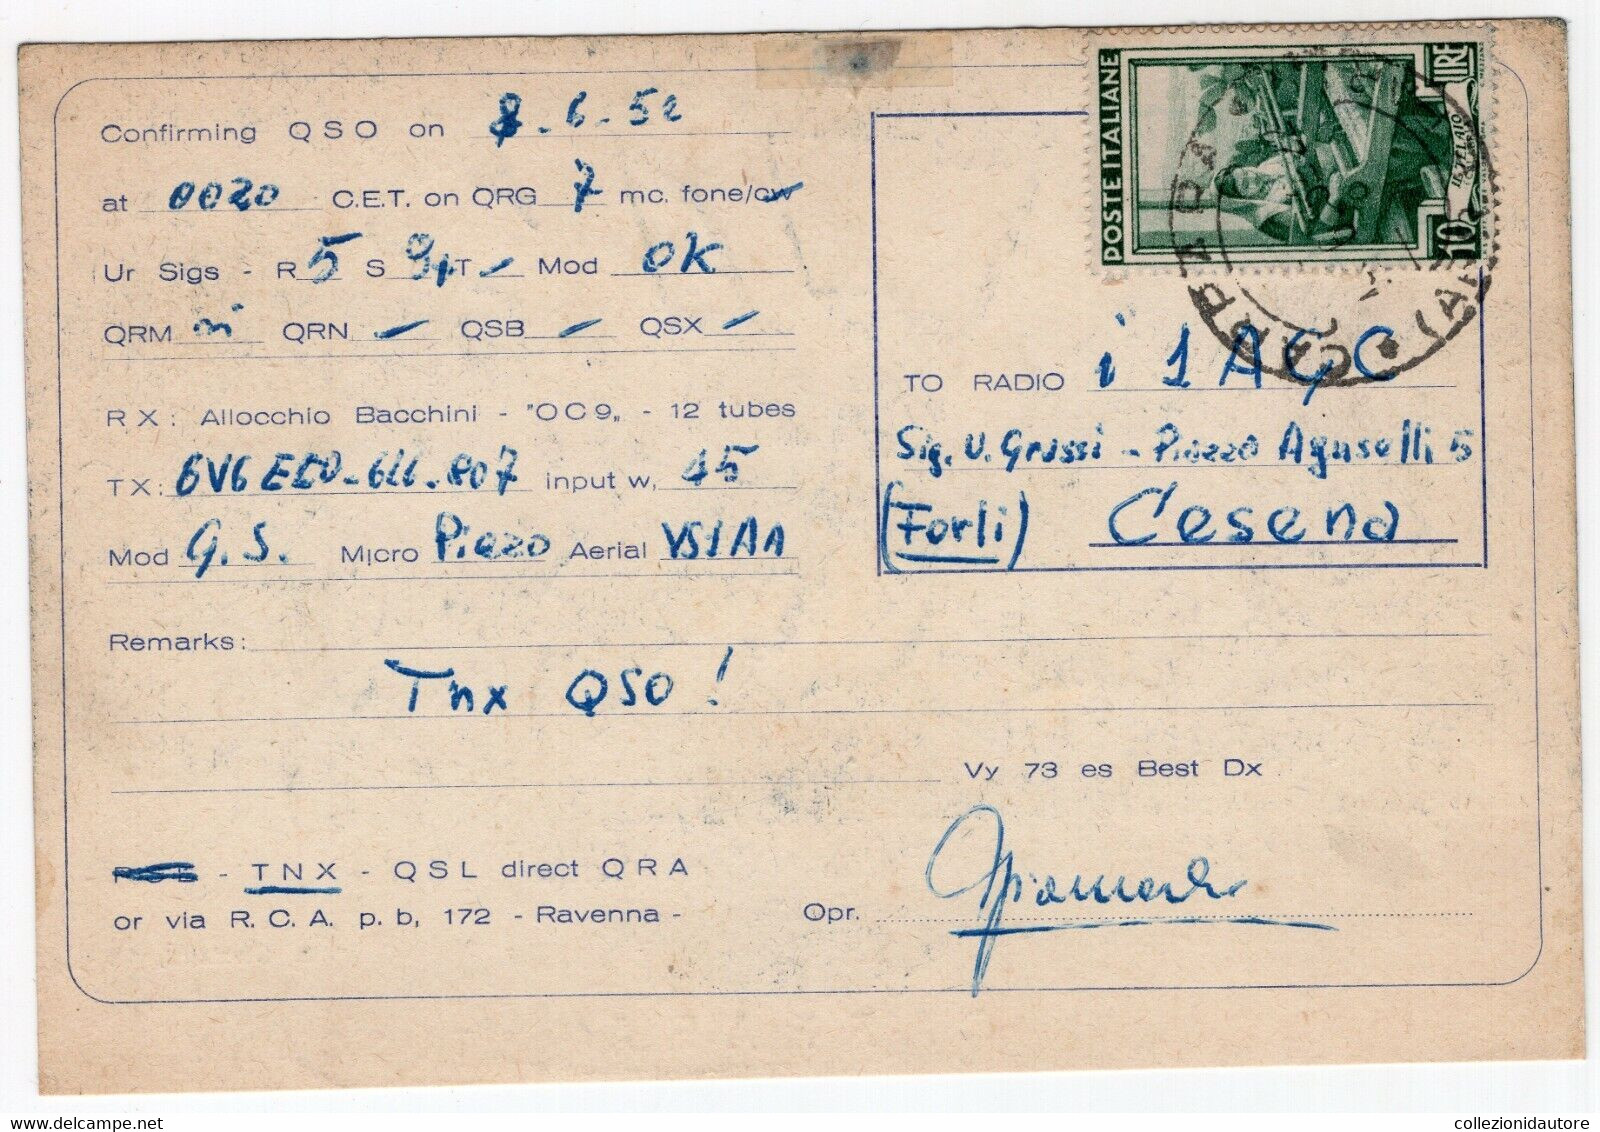 Confirming QSO on 8-6-52
at 0020 C.E.T. on QRG 7 mc. fone/cw
Ur Sigs - R 5 S 9+ T - Mod OK
QRM ni QRN - QSB - QSX -
RX: Allocchio Bacchini - "OC9„ - 12 tubes
TX: 6V6 EL50-6L6-807 input w, 45
Mod G.S. Micro Piezo Aerial VS1AA
Remarks:
Tnx QSO!
Vy 73 es Best Dx
- TNX - QSL direct QRA
or via R.C.A. p.b, 172 - Ravenna -
Opr.
POSTE ITALIANE
LIRE
10
IL LAZIO
CARPI
TO RADIO i1AGC
Sig. U. Grassi - Piazza Aguselli 5
(Forlì) Cesena
collezionidautore